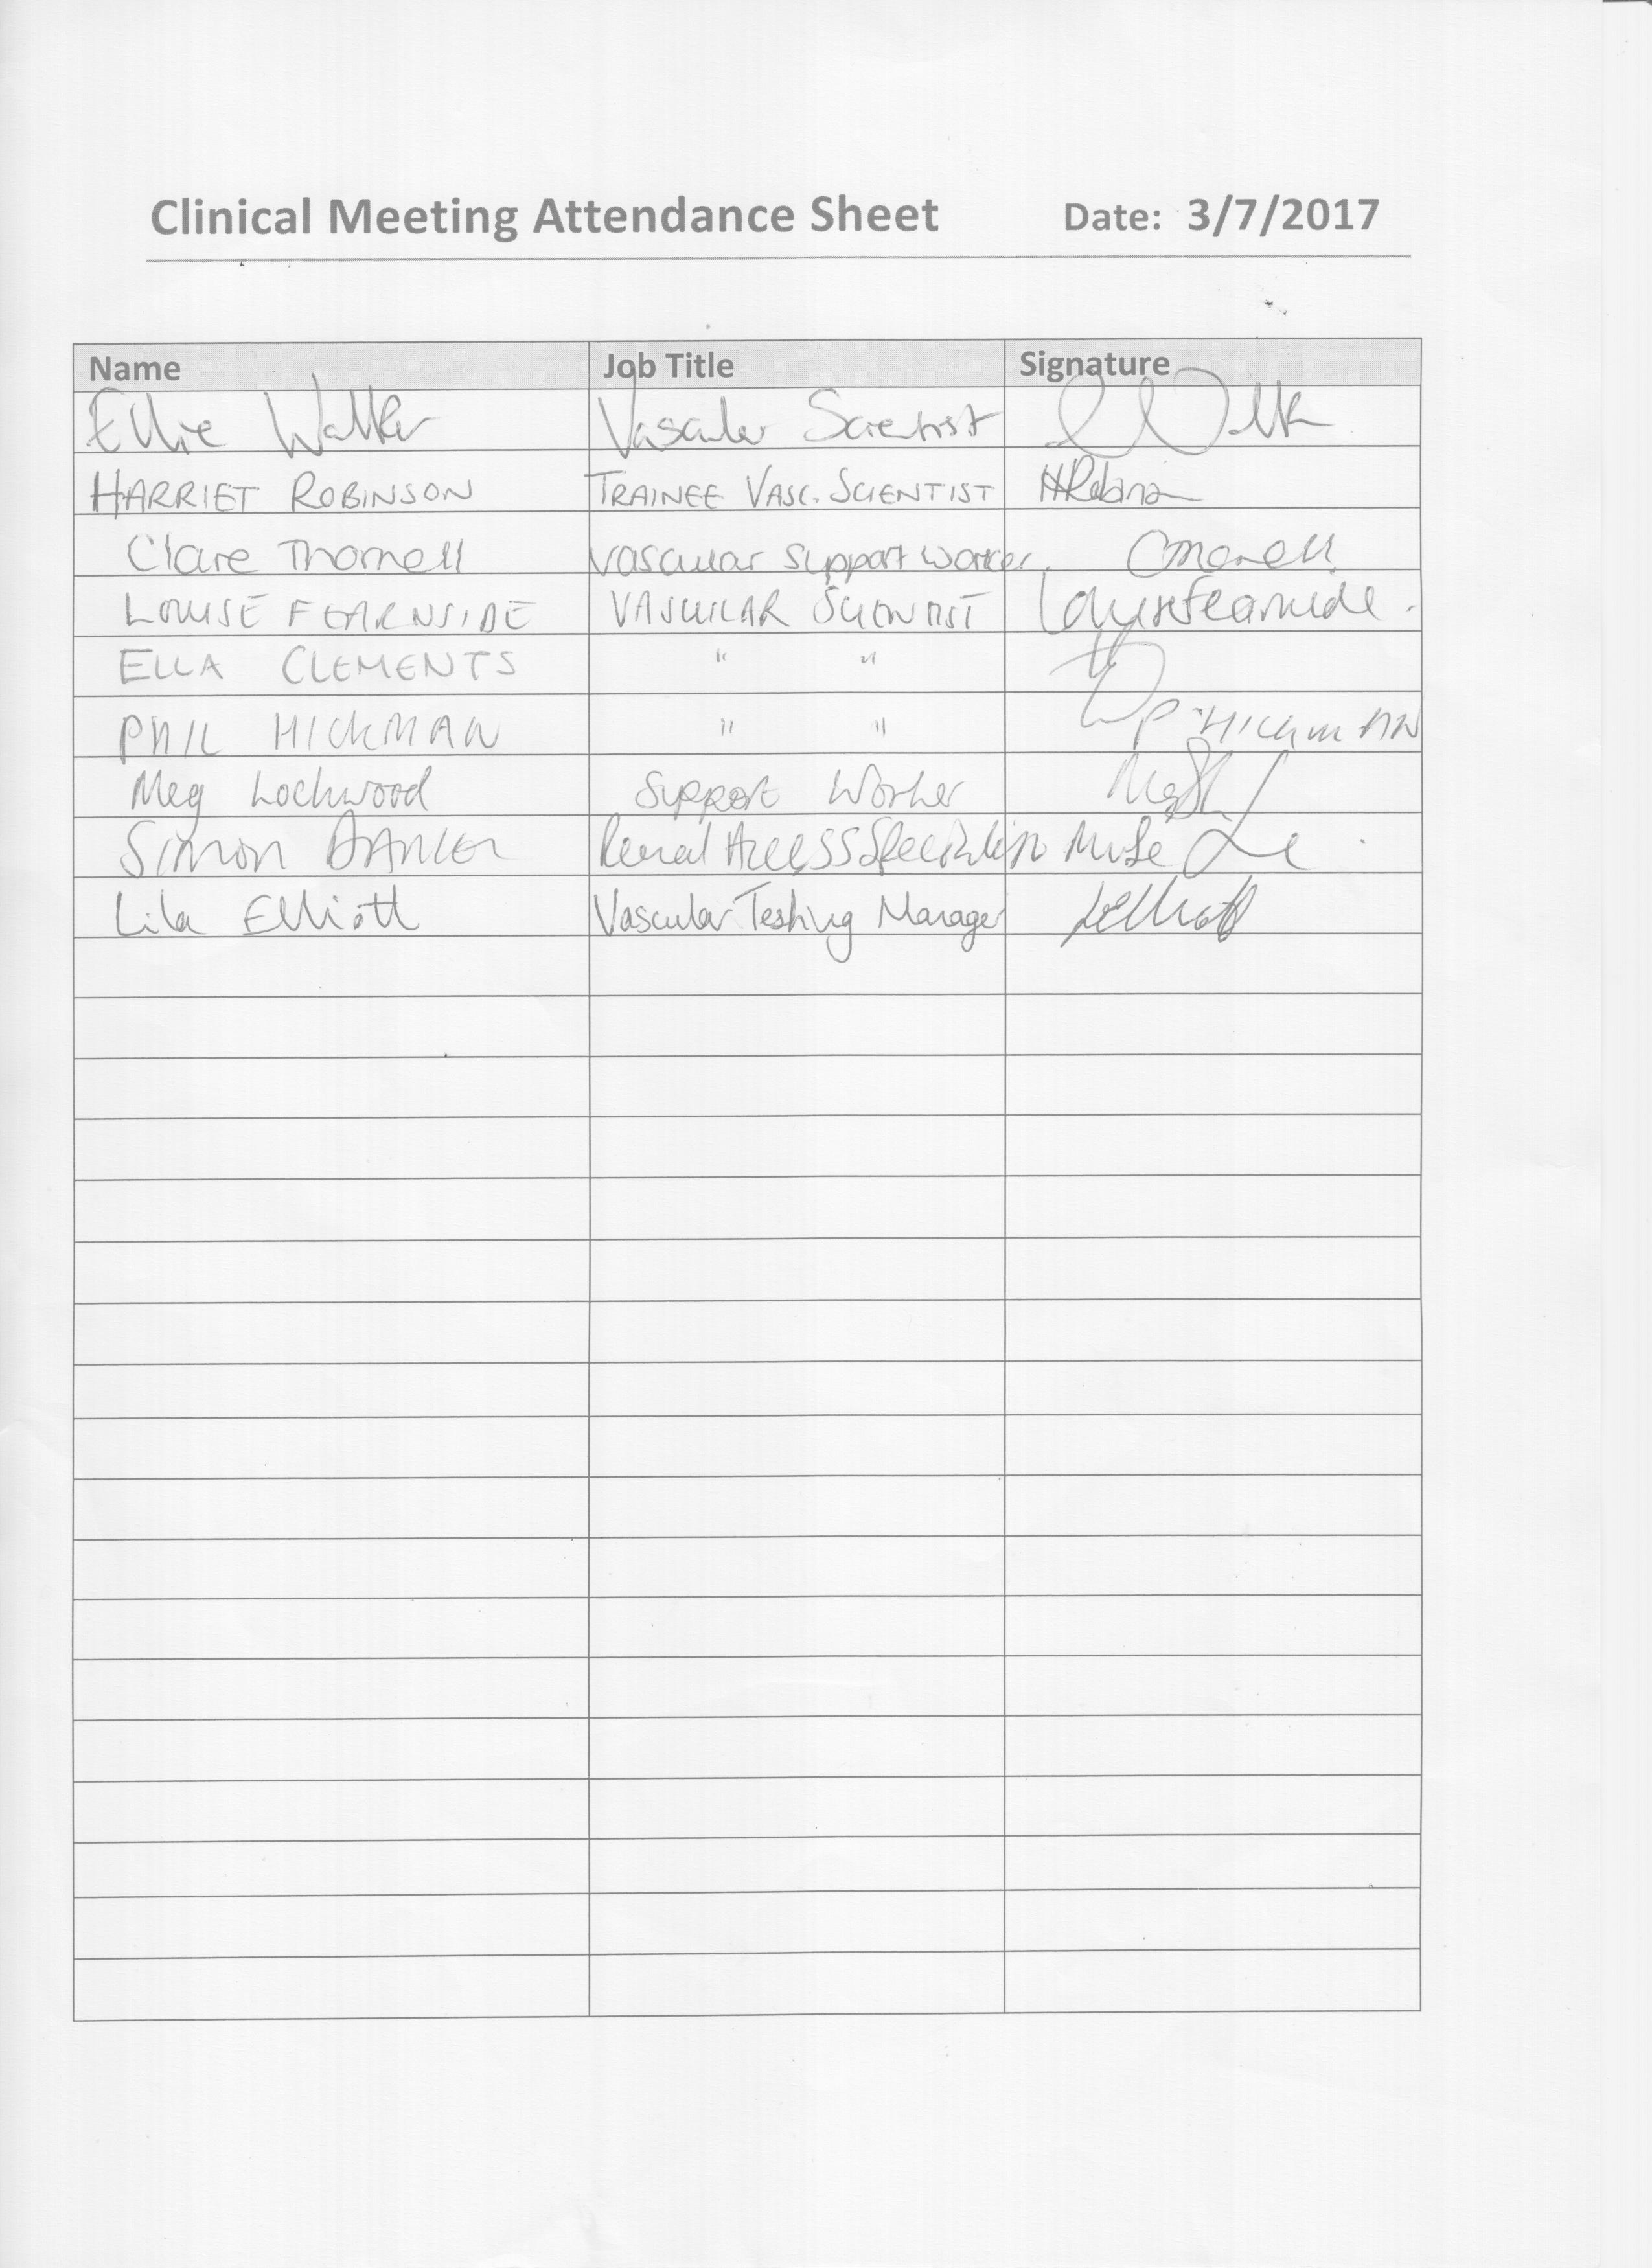 Clinical Meeting Attendance Sheet Date: 3/7/2017
Name Job Title Signature
Ellie Walker Vascular Scientist
HARRIET ROBINSON TRAINEE VASC. SCIENTIST HRobinson
Clare Thornell Vascular Support Worker.
LOUISE FEARNSIDE VASCULAR SCIENTIST Louise Fearnside.
ELLA CLEMENTS " "
PHIL HICKMAN " " P HICKMAN
Meg Lockwood Support Worker
Simon Renal Access Specialist Nurse
Lila Elliott Vascular Testing Manager LElliott